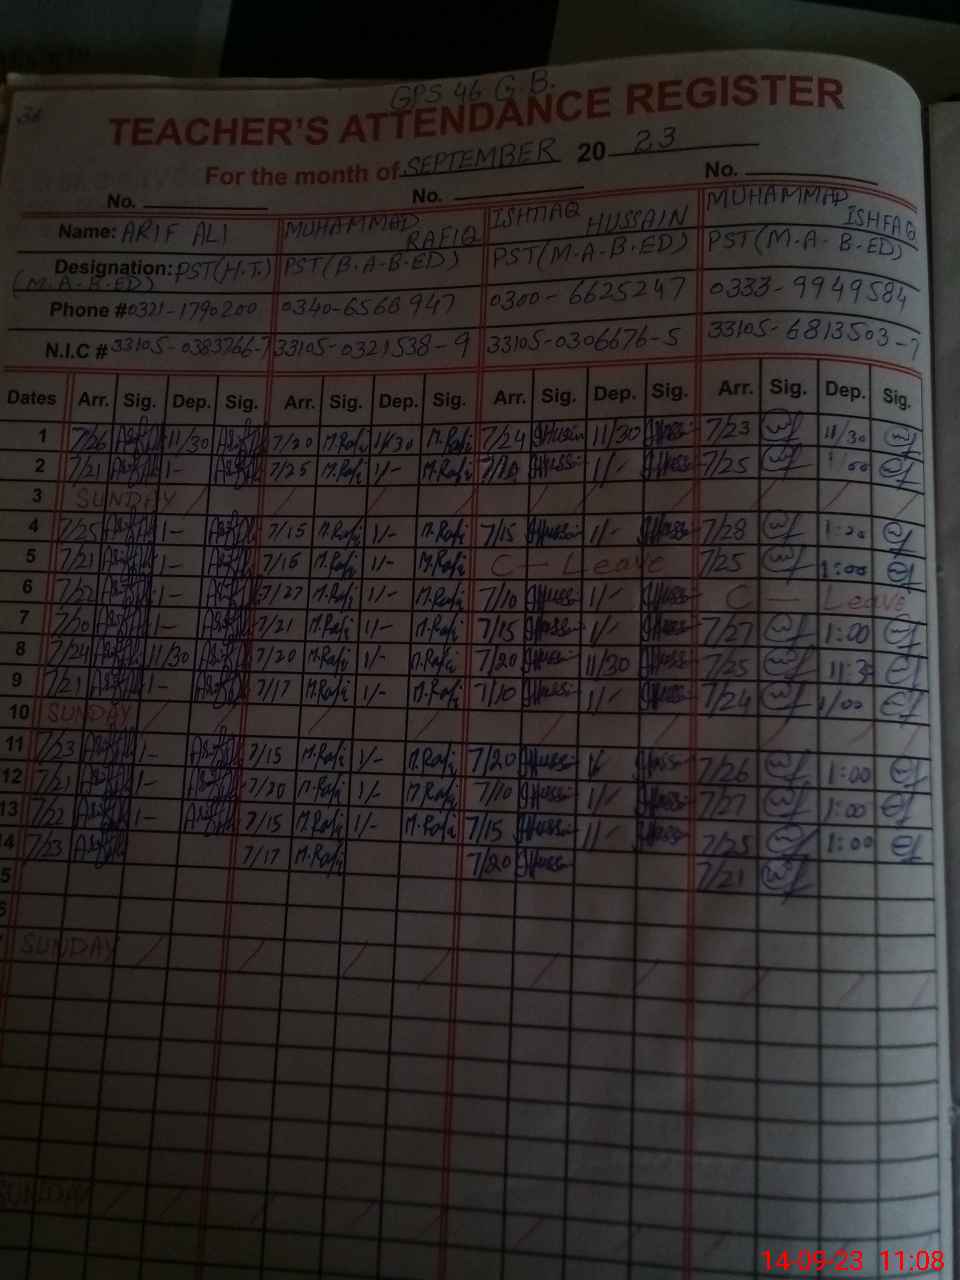 36
GPS 46 G.B.
TEACHER'S ATTENDANCE REGISTER
For the month of SEPTEMBER 2023
No. No. No.
Name: ARIF ALI MUHAMMAD RAFIQ ISHTIAQ HUSSAIN MUHAMMAD ISHFAQ
Designation: PST(H.T.) (M.A-B.ED) PST(B.A-B-ED) PST(M.A-B.ED) PST(M.A-B.ED)
Phone # 0321-1790200 0300-6625247 0333-9949584
N.I.C # 33105-0383766-7 33105-0321538-9 33105-0306676-5 33105-6813503-7
Dates Arr. Sig. Dep. Sig. Arr. Sig. Dep. Sig. Arr. Sig. Dep. Sig. Arr. Sig. Dep. Sig.
1 7/26 11/30 7/20 M.Rafi 11/30 M.Rafi 7/24 11/30 7/23 11/30
2 7/21 1/- 7/25 M.Rafi 1/- M.Rafi 1/- 7/25 1/00
3 SUNDAY
4 7/25 1/- 7/15 M.Rafi 1/- M.Rafi 7/15 1/- 7/28
5 7/21 1/- 7/16 M.Rafi 1/- M.Rafi C - Leave 7/25 1:00
6 7/22 1/- 7/27 M.Rafi 1/- M.Rafi 7/10 1/- C - Leave
7 7/20 1/- 7/21 M.Rafi 1/- M.Rafi 7/15 1/- 7/27 1:00
8 7/24 11/30 7/20 M.Rafi 1/- M.Rafi 7/20 11/30 7/25 11:30
9 7/21 1/- 7/17 M.Rafi 1/- M.Rafi 7/10 1/- 7/24 1/00
10 SUNDAY
11 7/23 1/- 7/15 M.Rafi 1/- M.Rafi 7/20 1/- 7/26 1:00
12 7/21 1/- 7/20 M.Rafi 1/- M.Rafi 7/10 1/- 7/27 1:00
13 7/22 1/- 7/15 M.Rafi 1/- M.Rafi 7/15 1/- 7/25 1:00
14 7/23 7/17 M.Rafi 7/20 7/21
5
6
SUNDAY
SUNDAY
14-09-23 11:08